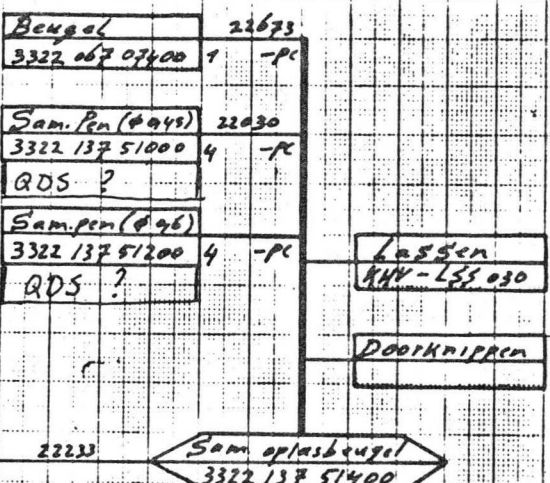 Beugel 22673
3322 067 07400 1 -pc
Sam. Pen (ø 0,45) 22030
3322 137 51000 4 -pc
QDS ?
Sam. pen (ø 0,6)
3322 137 51200 4 -pc
QDS ?
Lassen
KHV-LSS 030
Doorknippen
22233 Sam. oplasbeugel
3322 137 51400